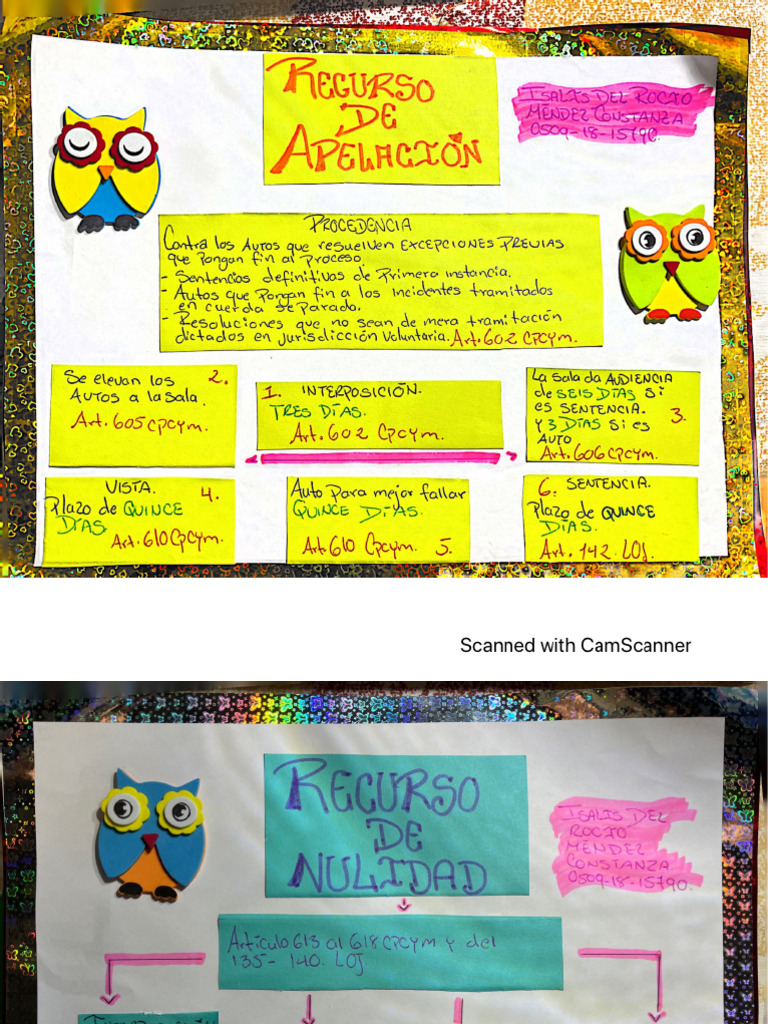 RECURSO
DE
APELACIÓN
ISALIS DEL ROCIO
MÉNDEZ CONSTANZA
0509-18-15790.
PROCEDENCIA
Contra los Autos que resuelven EXCEPCIONES PREVIAS
que pongan fin al proceso.
- Sentencias definitivas de Primera instancia.
- Autos que Pongan fin a los incidentes tramitados
en cuerda separada.
- Resoluciones que no sean de mera tramitación
dictados en Jurisdicción Voluntaria. Art. 602 CPCym.
Se elevan los 2.
AUTOS a la sala.
Art. 605 CPCym.
1. INTERPOSICIÓN.
TRES DÍAS.
Art. 602 CPCym.
La sala da AUDIENCIA
de SEIS DÍAS Si
es SENTENCIA. 3.
y 3 DÍAS Si es
AUTO
Art. 606 CPCym.
VISTA. 4.
Plazo de QUINCE
DÍAS
Art. 610 CPCym.
Auto Para mejor fallar
QUINCE DÍAS.
Art. 610 CPCym. 5.
6. SENTENCIA.
Plazo de QUINCE
DÍAS.
Art. 142. LOJ.
Scanned with CamScanner
RECURSO
DE
NULIDAD
ISALIS DEL
ROCIO
MÉNDEZ
CONSTANZA
0509-18-15790.
Artículo 613 al 618 CPCYM y del
135- 140. LOJ